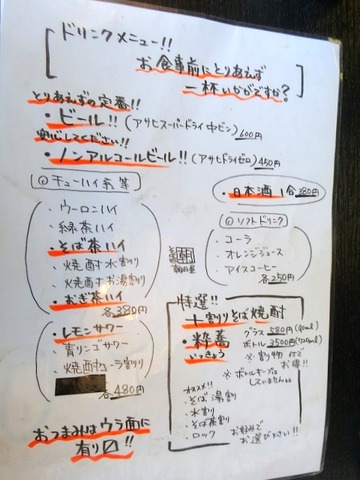 ドリンクメニュー!!
お食事前にとりあえず
一杯いかがですか?
とりあえずの定番!!
・ビール!!(アサヒスーパードライ中ビン)600円
安心してください!!
・ノンアルコールビール!!(アサヒドライゼロ)450円
◎チューハイ系等
・ウーロンハイ
・緑茶ハイ
・そば茶ハイ
・焼酎水割り
・焼酎お湯割り
・おぎ茶ハイ
各380円
・レモンサワー
・青リンゴサワー
・焼酎コーラ割り
各480円
おつまみはウラ面に
有り〼!!
・日本酒 1合380円
◎ソフトドリンク
・コーラ
・オレンジジュース
・アイスコーヒー
各250円
特選!!
十割りそば焼酎
・粋蕎
いっきょう
グラス580円(90ml)
ボトル3500円(720ml)
※割り物付で
お得!!
※ボトルキープは
していません
オススメ!!
・そば湯割
・水割り
・そば茶割
・ロック
お好みで
お選び下さい!!